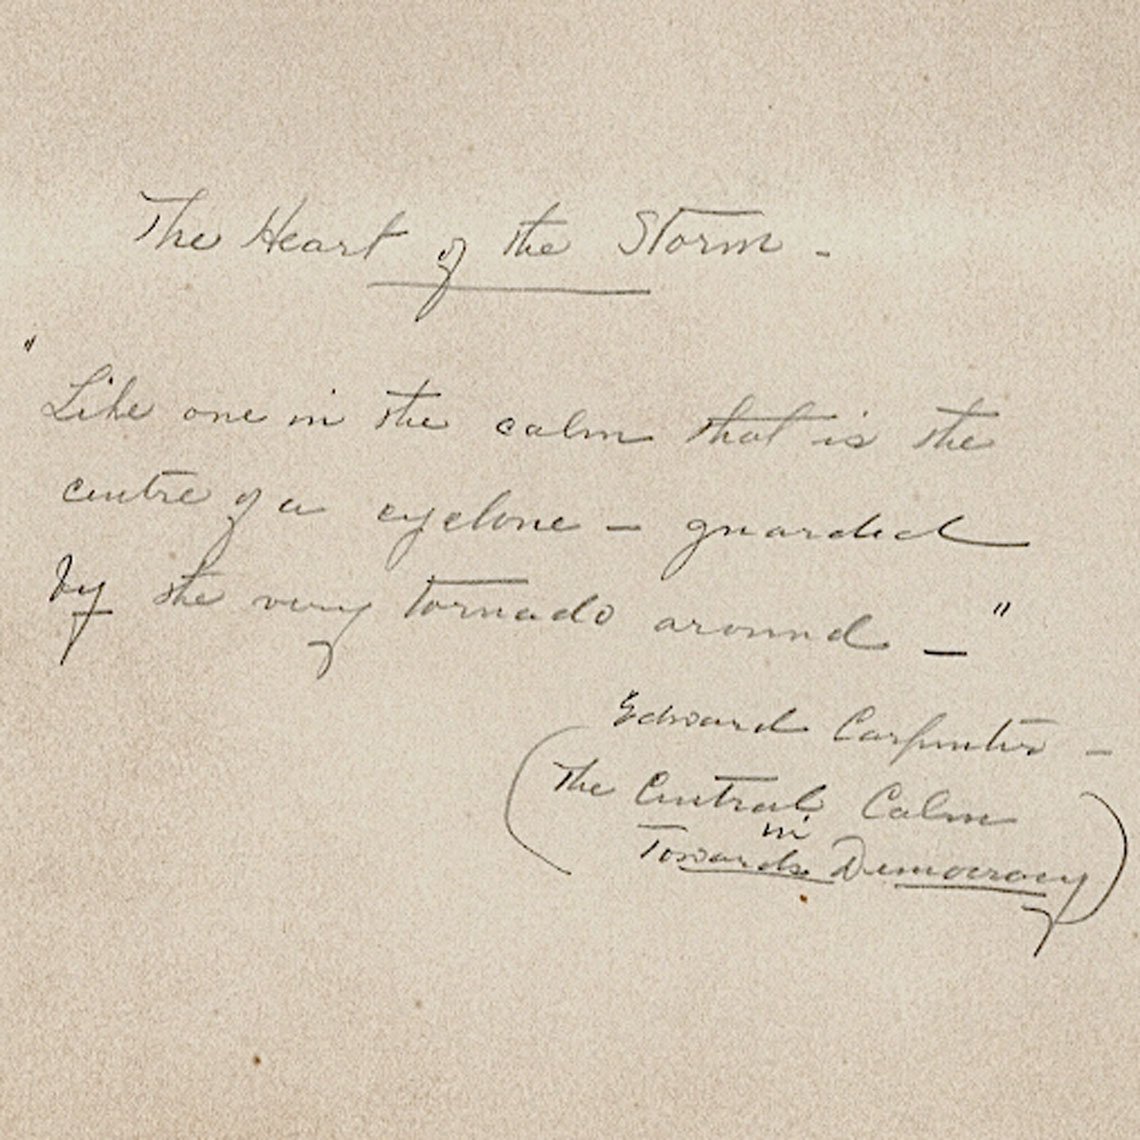 The Heart of the Storm -
"Like one in the calm that is the
centre of a cyclone - guarded
by the very tornado around -"
Edward Carpenter -
(The Central Calm
in
Towards Democracy)